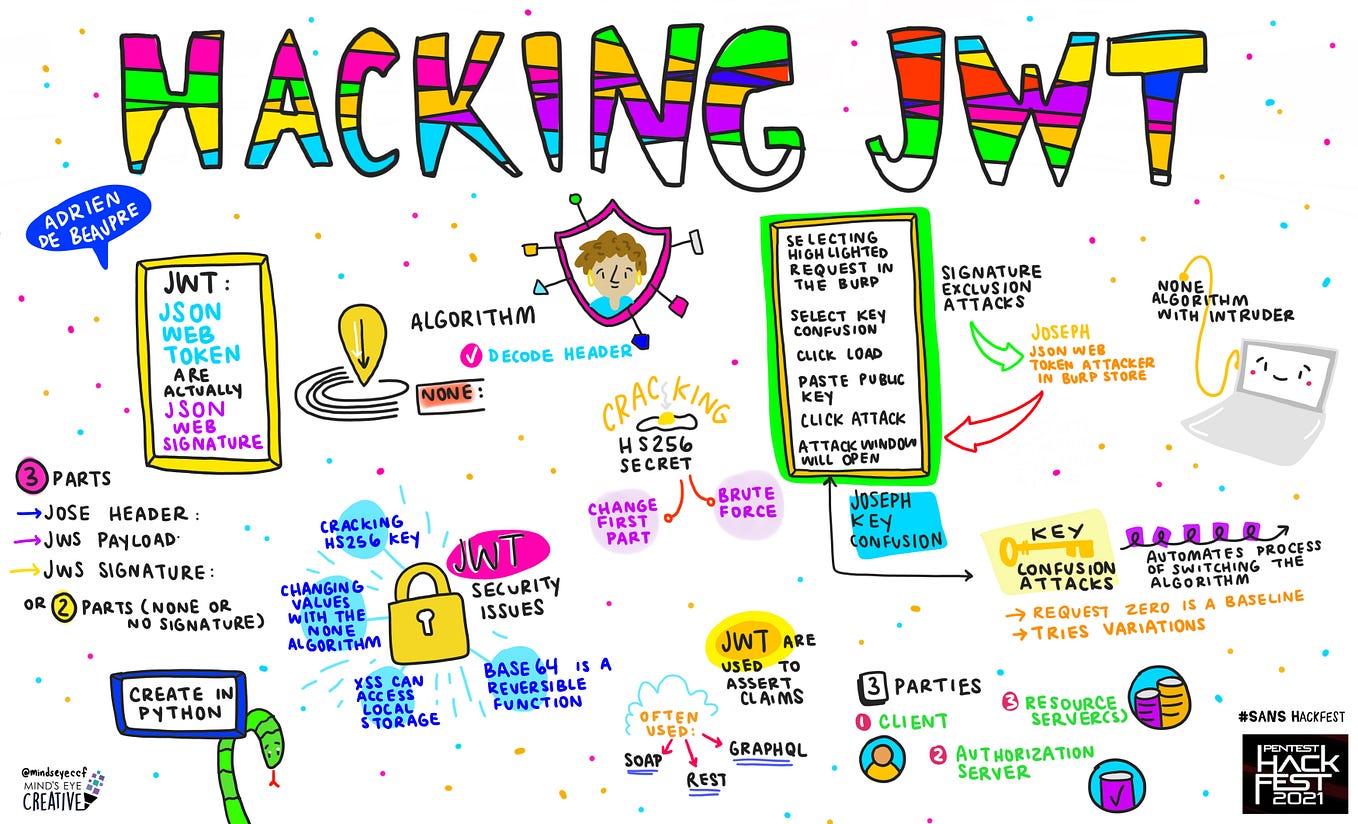 HACKING JWT
ADRIEN
DE BEAUPRE
JWT:
JSON
WEB
TOKEN
ARE
ACTUALLY
JSON
WEB
SIGNATURE
ALGORITHM
DECODE HEADER
NONE:
CRACKING
HS256
SECRET
CHANGE
FIRST
PART
BRUTE
FORCE
SELECTING
HIGHLIGHTED
REQUEST IN
THE BURP
SELECT KEY
CONFUSION
CLICK LOAD
PASTE PUBLIC
KEY
CLICK ATTACK
ATTACK WINDOW
WILL OPEN
SIGNATURE
EXCLUSION
ATTACKS
JOSEPH
JSON WEB
TOKEN ATTACKER
IN BURP STORE
NONE
ALGORITHM
WITH INTRUDER
3 PARTS
JOSE HEADER:
JWS PAYLOAD
JWS SIGNATURE:
OR 2 PARTS (NONE OR
NO SIGNATURE)
CREATE IN
PYTHON
JWT
SECURITY
ISSUES
CRACKING
HS256 KEY
CHANGING
VALUES
WITH THE
NONE
ALGORITHM
XSS CAN
ACCESS
LOCAL
STORAGE
BASE64 IS A
REVERSIBLE
FUNCTION
JOSEPH
KEY
CONFUSION
KEY
CONFUSION
ATTACKS
AUTOMATES PROCESS
OF SWITCHING THE
ALGORITHM
→ REQUEST ZERO IS A BASELINE
→ TRIES VARIATIONS
JWT ARE
USED TO
ASSERT
CLAIMS
OFTEN
USED:
SOAP
REST
GRAPHQL
3 PARTIES
1 CLIENT
2 AUTHORIZATION
SERVER
3 RESOURCE
SERVER(S)
#SANS HACKFEST
PENTEST
HACK
FEST
2021
@mindseyeccf
MIND'S EYE
CREATIVE